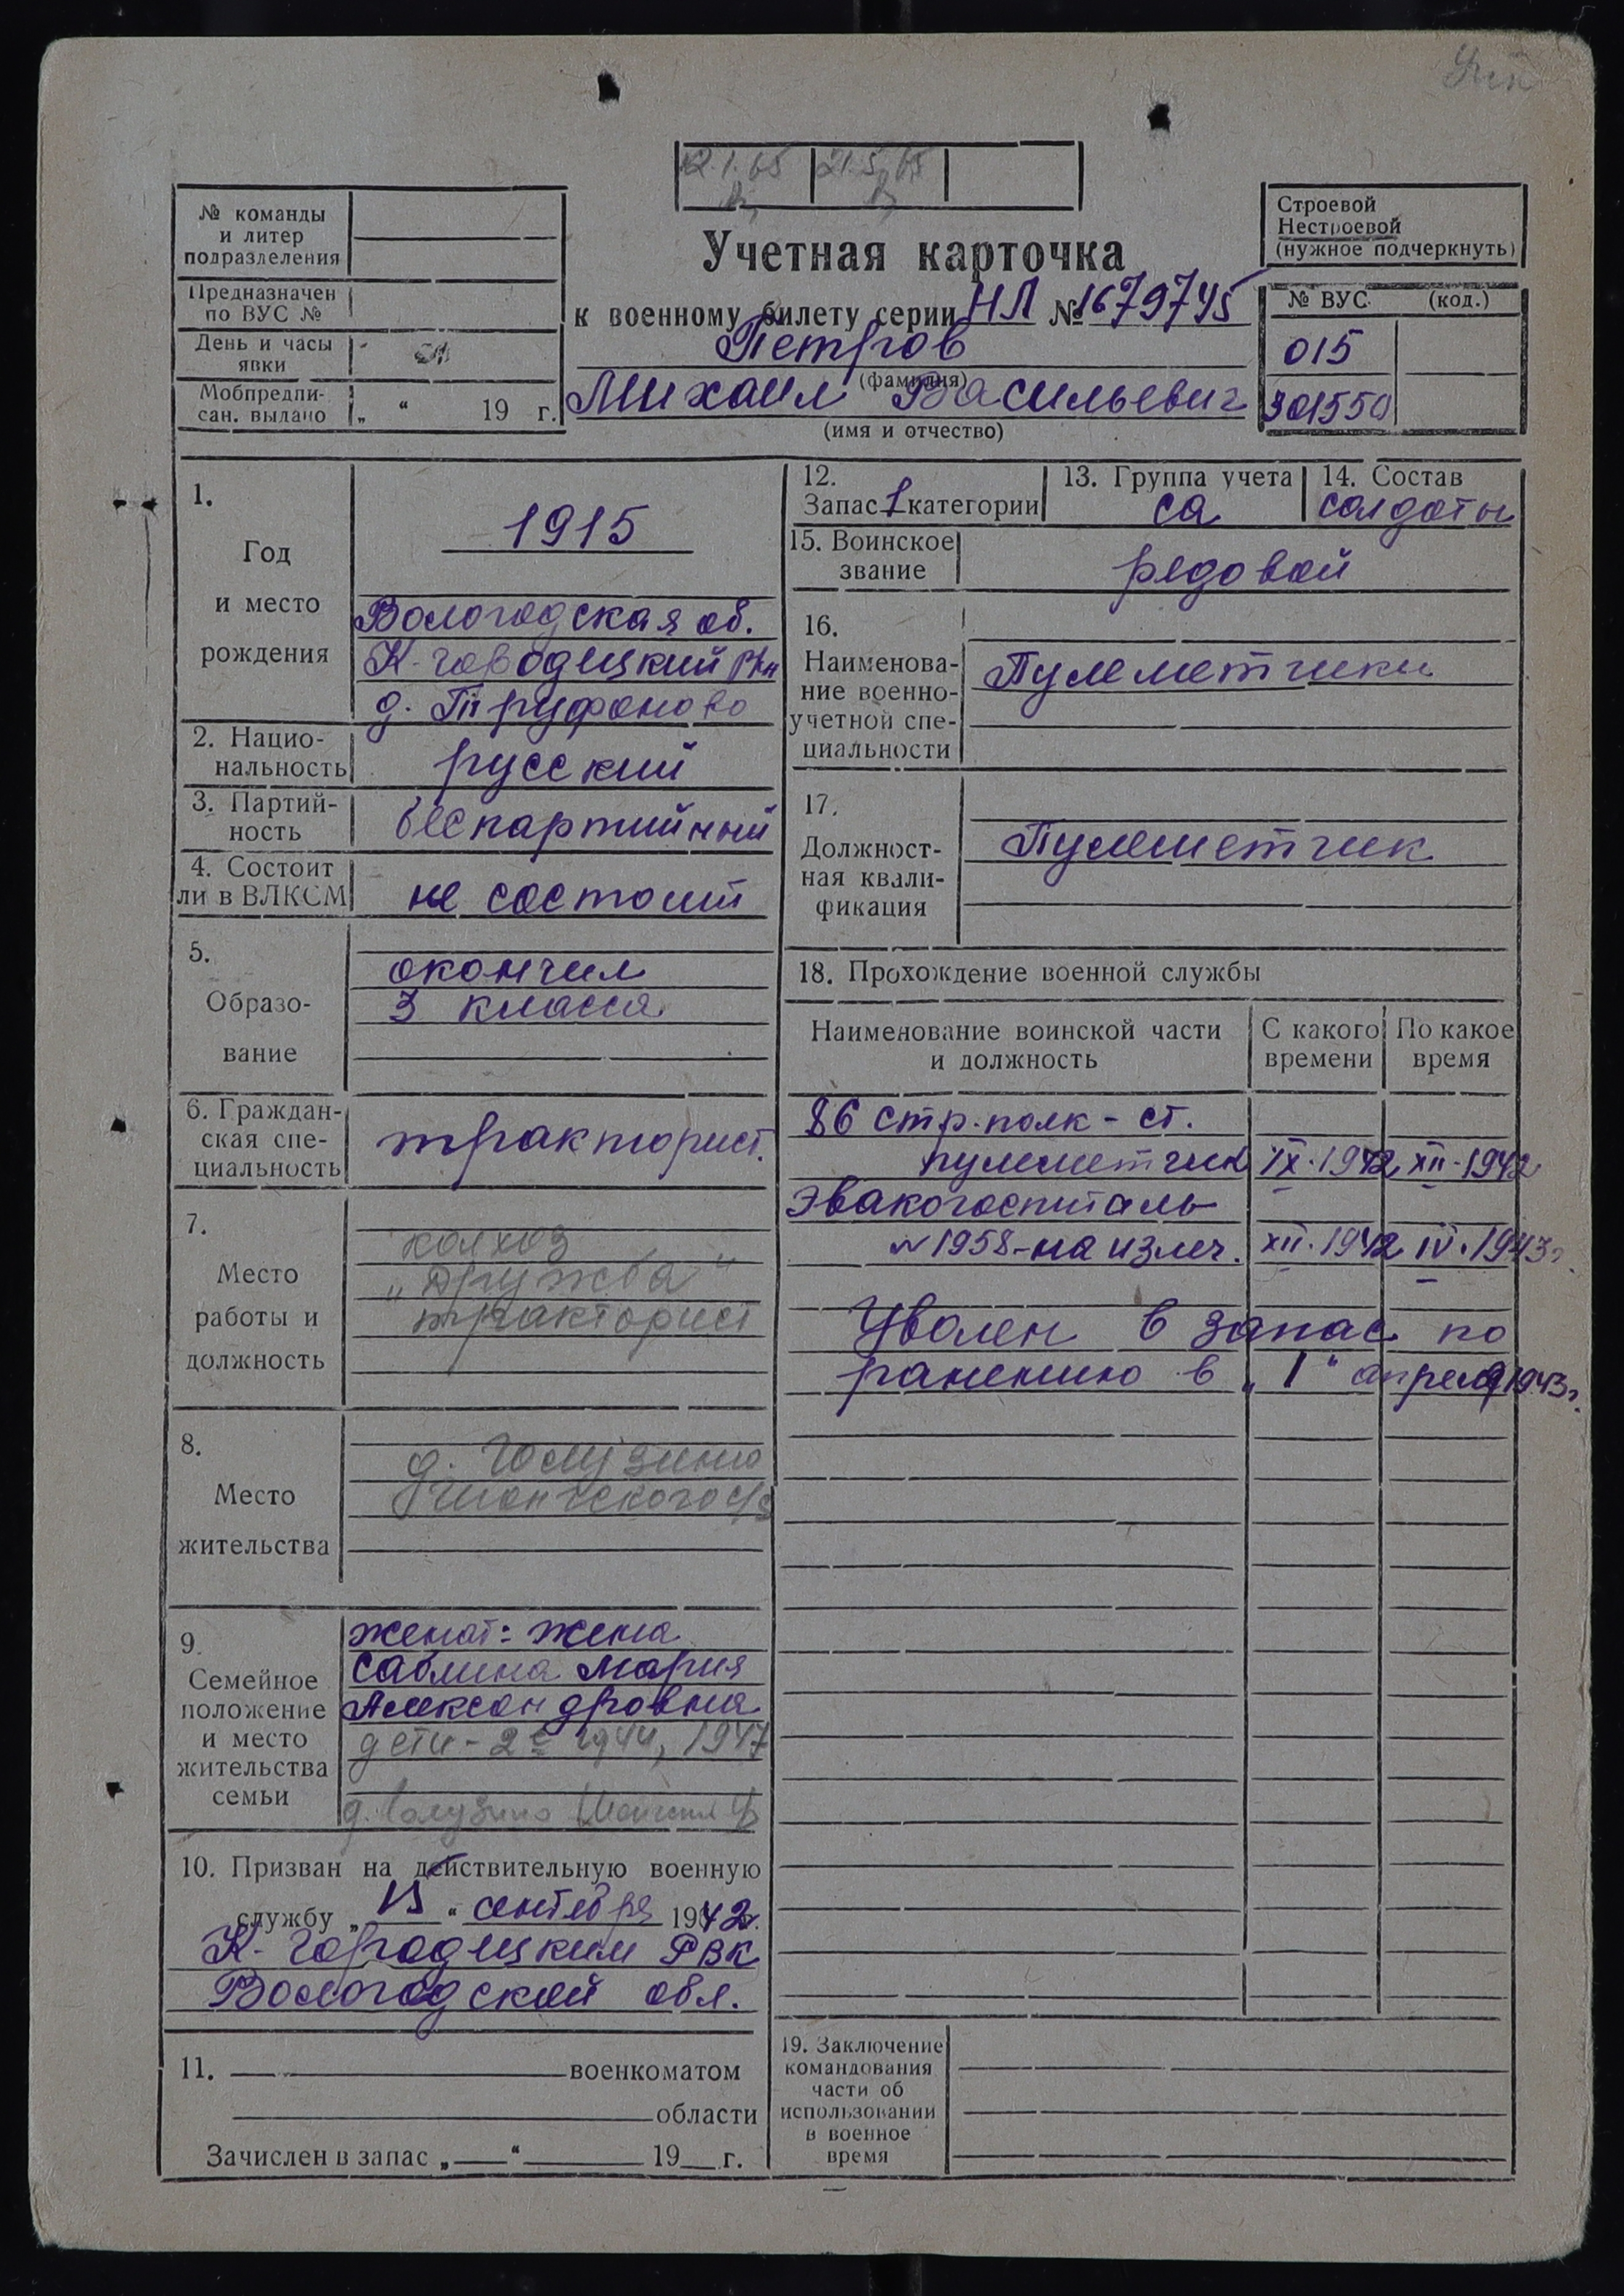 12.1.65 21.5.65
№ команды
и литер
подразделения
Предназначен
по ВУС №
День и часы
явки
Мобпредпи-
сан. выдано „ “ 19 г.
Учетная карточка
к военному билету серии НЛ № 1679745
Петров
(фамилия)
Михаил Васильевич
(имя и отчество)
Строевой
Нестроевой
(нужное подчеркнуть)
№ ВУС (код.)
015
301550
1.
Год
и место
рождения
1915
Вологодская об.
К-городецкий р-н
д. Труфоново
2. Нацио-
нальность
русский
3. Партий-
ность
беспартийный
4. Состоит
ли в ВЛКСМ
не состоит
5.
Образо-
вание
окончил
3 класса
6. Граждан-
ская спе-
циальность
тракторист.
7.
Место
работы и
должность
колхоз
„Дружба"
тракторист
8.
Место
жительства
д.
9.
Семейное
положение
и место
жительства
семьи
женат: жена
Саблина Мария
Александровна
дети - 2е 1944, 1947
д.
10. Призван на действительную военную
службу „15“ сентября 1942г.
К-Городецким РВК
Вологодской обл.
11. военкоматом
области
Зачислен в запас „ “ 19 г.
12.
Запас 1 категории
13. Группа учета
СА
14. Состав
солдаты
15. Воинское
звание
рядовой
16.
Наименова-
ние военно-
учетной спе-
циальности
Пулеметчики
17.
Должност-
ная квали-
фикация
Пулеметчик
18. Прохождение военной службы
Наименование воинской части
и должность
С какого
времени
По какое
время
86 стр. полк - ст.
пулеметчик IX.1942 XII-1942
Эвакогоспиталь
№1958-на излеч. XII.1942 IV.1943г.
Уволен в запас по
ранению в „1" апреля 1943г.
19. Заключение
командования
части об
использовании
в военное
время